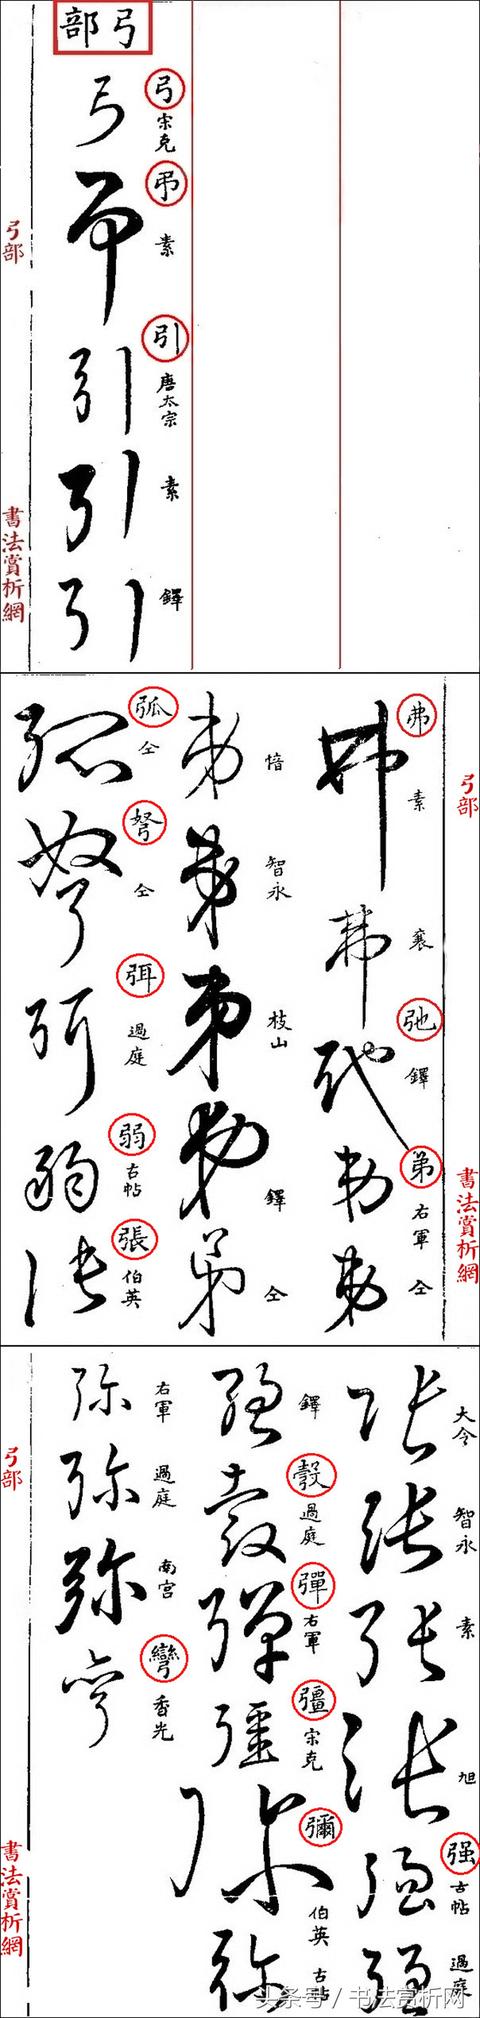 弓部
弓 宋克
弔 素
引 唐太宗
素
鐸
弓部
書法賞析網
弗 素
襄
弛 鐸
弟 右軍
仝
愔
智永
枝山
鐸
仝
弧 仝
弩 仝
弭 過庭
弱 古帖
張 伯英
弓部
書法賞析網
大令
智永
素
旭
强 古帖
過庭
鐸
彀 過庭
彈 右軍
彊 宋克
彌 伯英
古帖
右軍
過庭
南宫
彎 香光
弓部
書法賞析網
头条号 / 书法赏析网